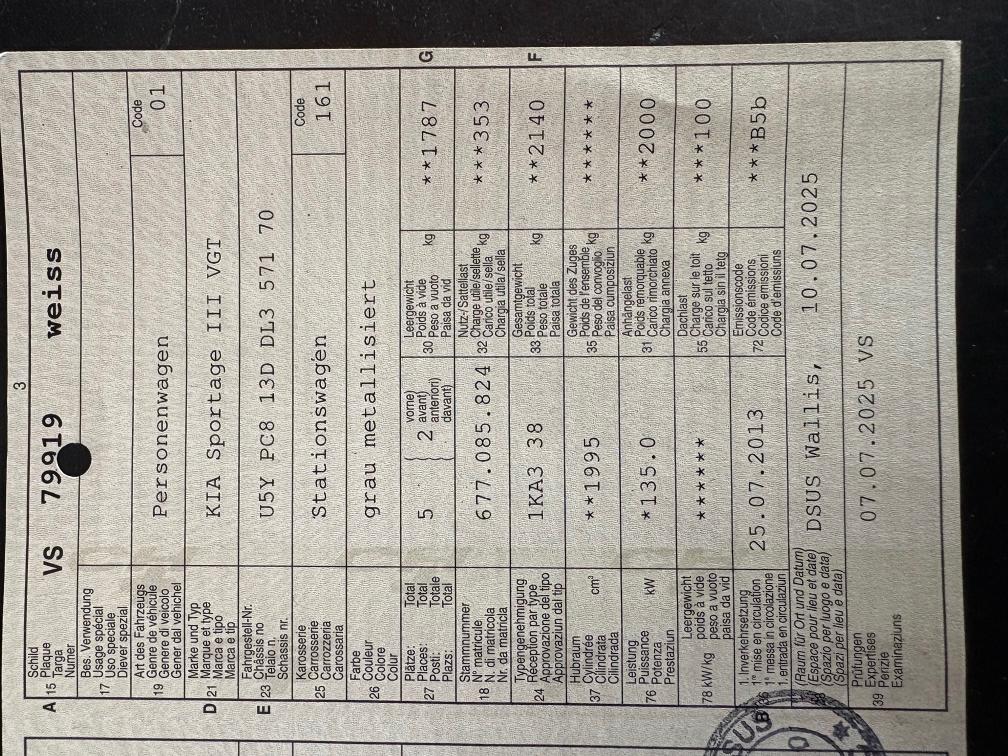 3
A 15 Schild
Plaque
Targa
Numer
VS 79919 weiss
17 Bes. Verwendung
Usage spécial
Uso speciale
Diever spezial
19 Art des Fahrzeugs
Genre de véhicule
Genere di veicolo
Gener dal vehichel
Personenwagen
Code
01
D 21 Marke und Typ
Marque et type
Marca e tipo
Marca e tip
KIA Sportage III VGT
E 23 Fahrgestell-Nr.
Châssis no
Telaio n.
Schassis nr.
U5Y PC8 13D DL3 571 70
25 Karosserie
Carrosserie
Carrozzeria
Carossaria
Stationswagen
Code
161
26 Farbe
Couleur
Colore
Colur
grau metallisiert
27 Plätze: Total
Places: Totale
Posti: Totale
Plazs: Total
5 ( 2 vorne)
avant)
anteriori)
davant)
30 Leergewicht
Poids à vide
Peso a vuoto
Paisa da vid
kg
**1787
G
18 Stammnummer
N° matricule
N. matricola
Nr. da matricla
677.085.824
32 Nutz-/Sattellast
Charge utile/sellette
Carico utile/sella
Chargia utila/sella
kg
***353
24 Typengenehmigung
Réception par type
Approvazione del tipo
Approvaziun dal tip
1KA3 38
33 Gesamtgewicht
Poids total
Peso totale
Paisa totala
kg
**2140
F
37 Hubraum
Cylindrée
Cilindrata
Cilindrada
cm³
**1995
35 Gewicht des Zuges
Poids de l'ensemble
Peso del convoglio
Paisa cumposiziun
kg
******
76 Leistung
Puissance
Potenza
Prestaziun
kW
*135.0
31 Anhängelast
Poids remorquable
Carico rimorchiato
Chargia annexa
kg
**2000
78 kW/kg Leergewicht
poids à vide
peso a vuoto
paisa da vid
******
55 Dachlast
Charge sur le toit
Carico sul tetto
Chargia sin il tetg
kg
***100
B 36 1. Inverkehrsetzung
1re mise en circulation
1a messa in circolazione
1. entrada en circulaziun
25.07.2013
72 Emissionscode
Code émissions
Codice emissioni
Code d'emissiuns
***B5b
(Raum für Ort und Datum)
(Espace pour lieu et date)
(Spazio per luogo e data)
(Spazi per lieu e data)
DSUS Wallis, 10.07.2025
39 Prüfungen
Expertises
Perizie
Examinaziuns
07.07.2025 VS
SUS